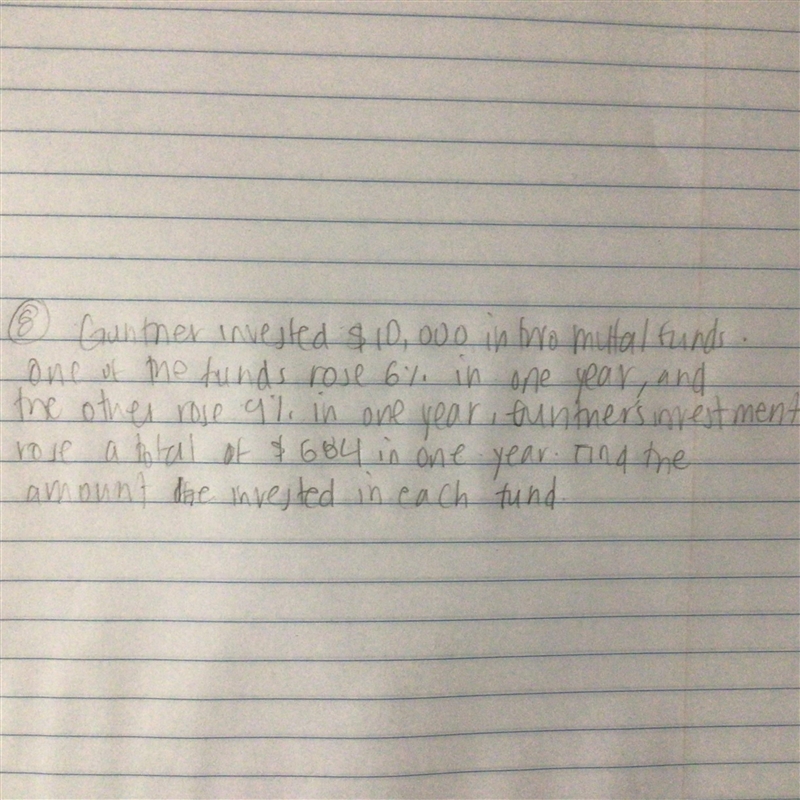 ⑧ Guntner invested $10,000 in two muttal funds.
One of the funds rose 6% in one year, and
the other rose 9% in one year. Guntner's investment
rose a total of $684 in one year. Find the
amount he invested in each fund.